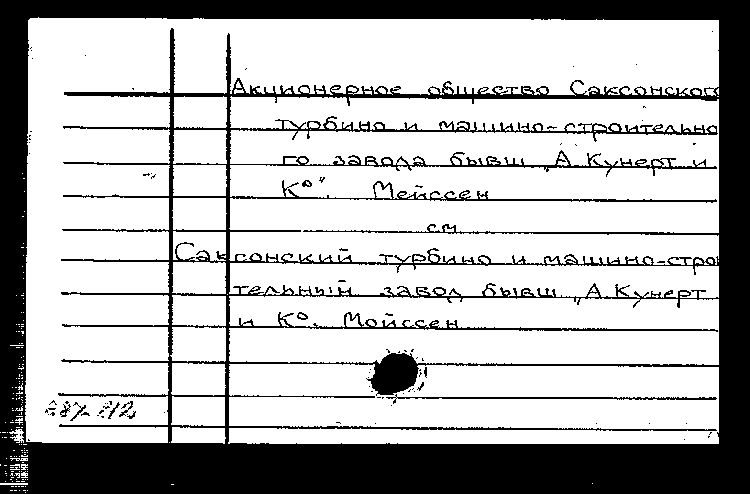 Акционерное общество Саксонског
турбино и машино-строительно
го завода бывш „А. Кунерт и
К°". Мейссен
см
Саксонский турбино и машино-стро
тельный завод бывш „А. Кунерт
и К°. Мойссен